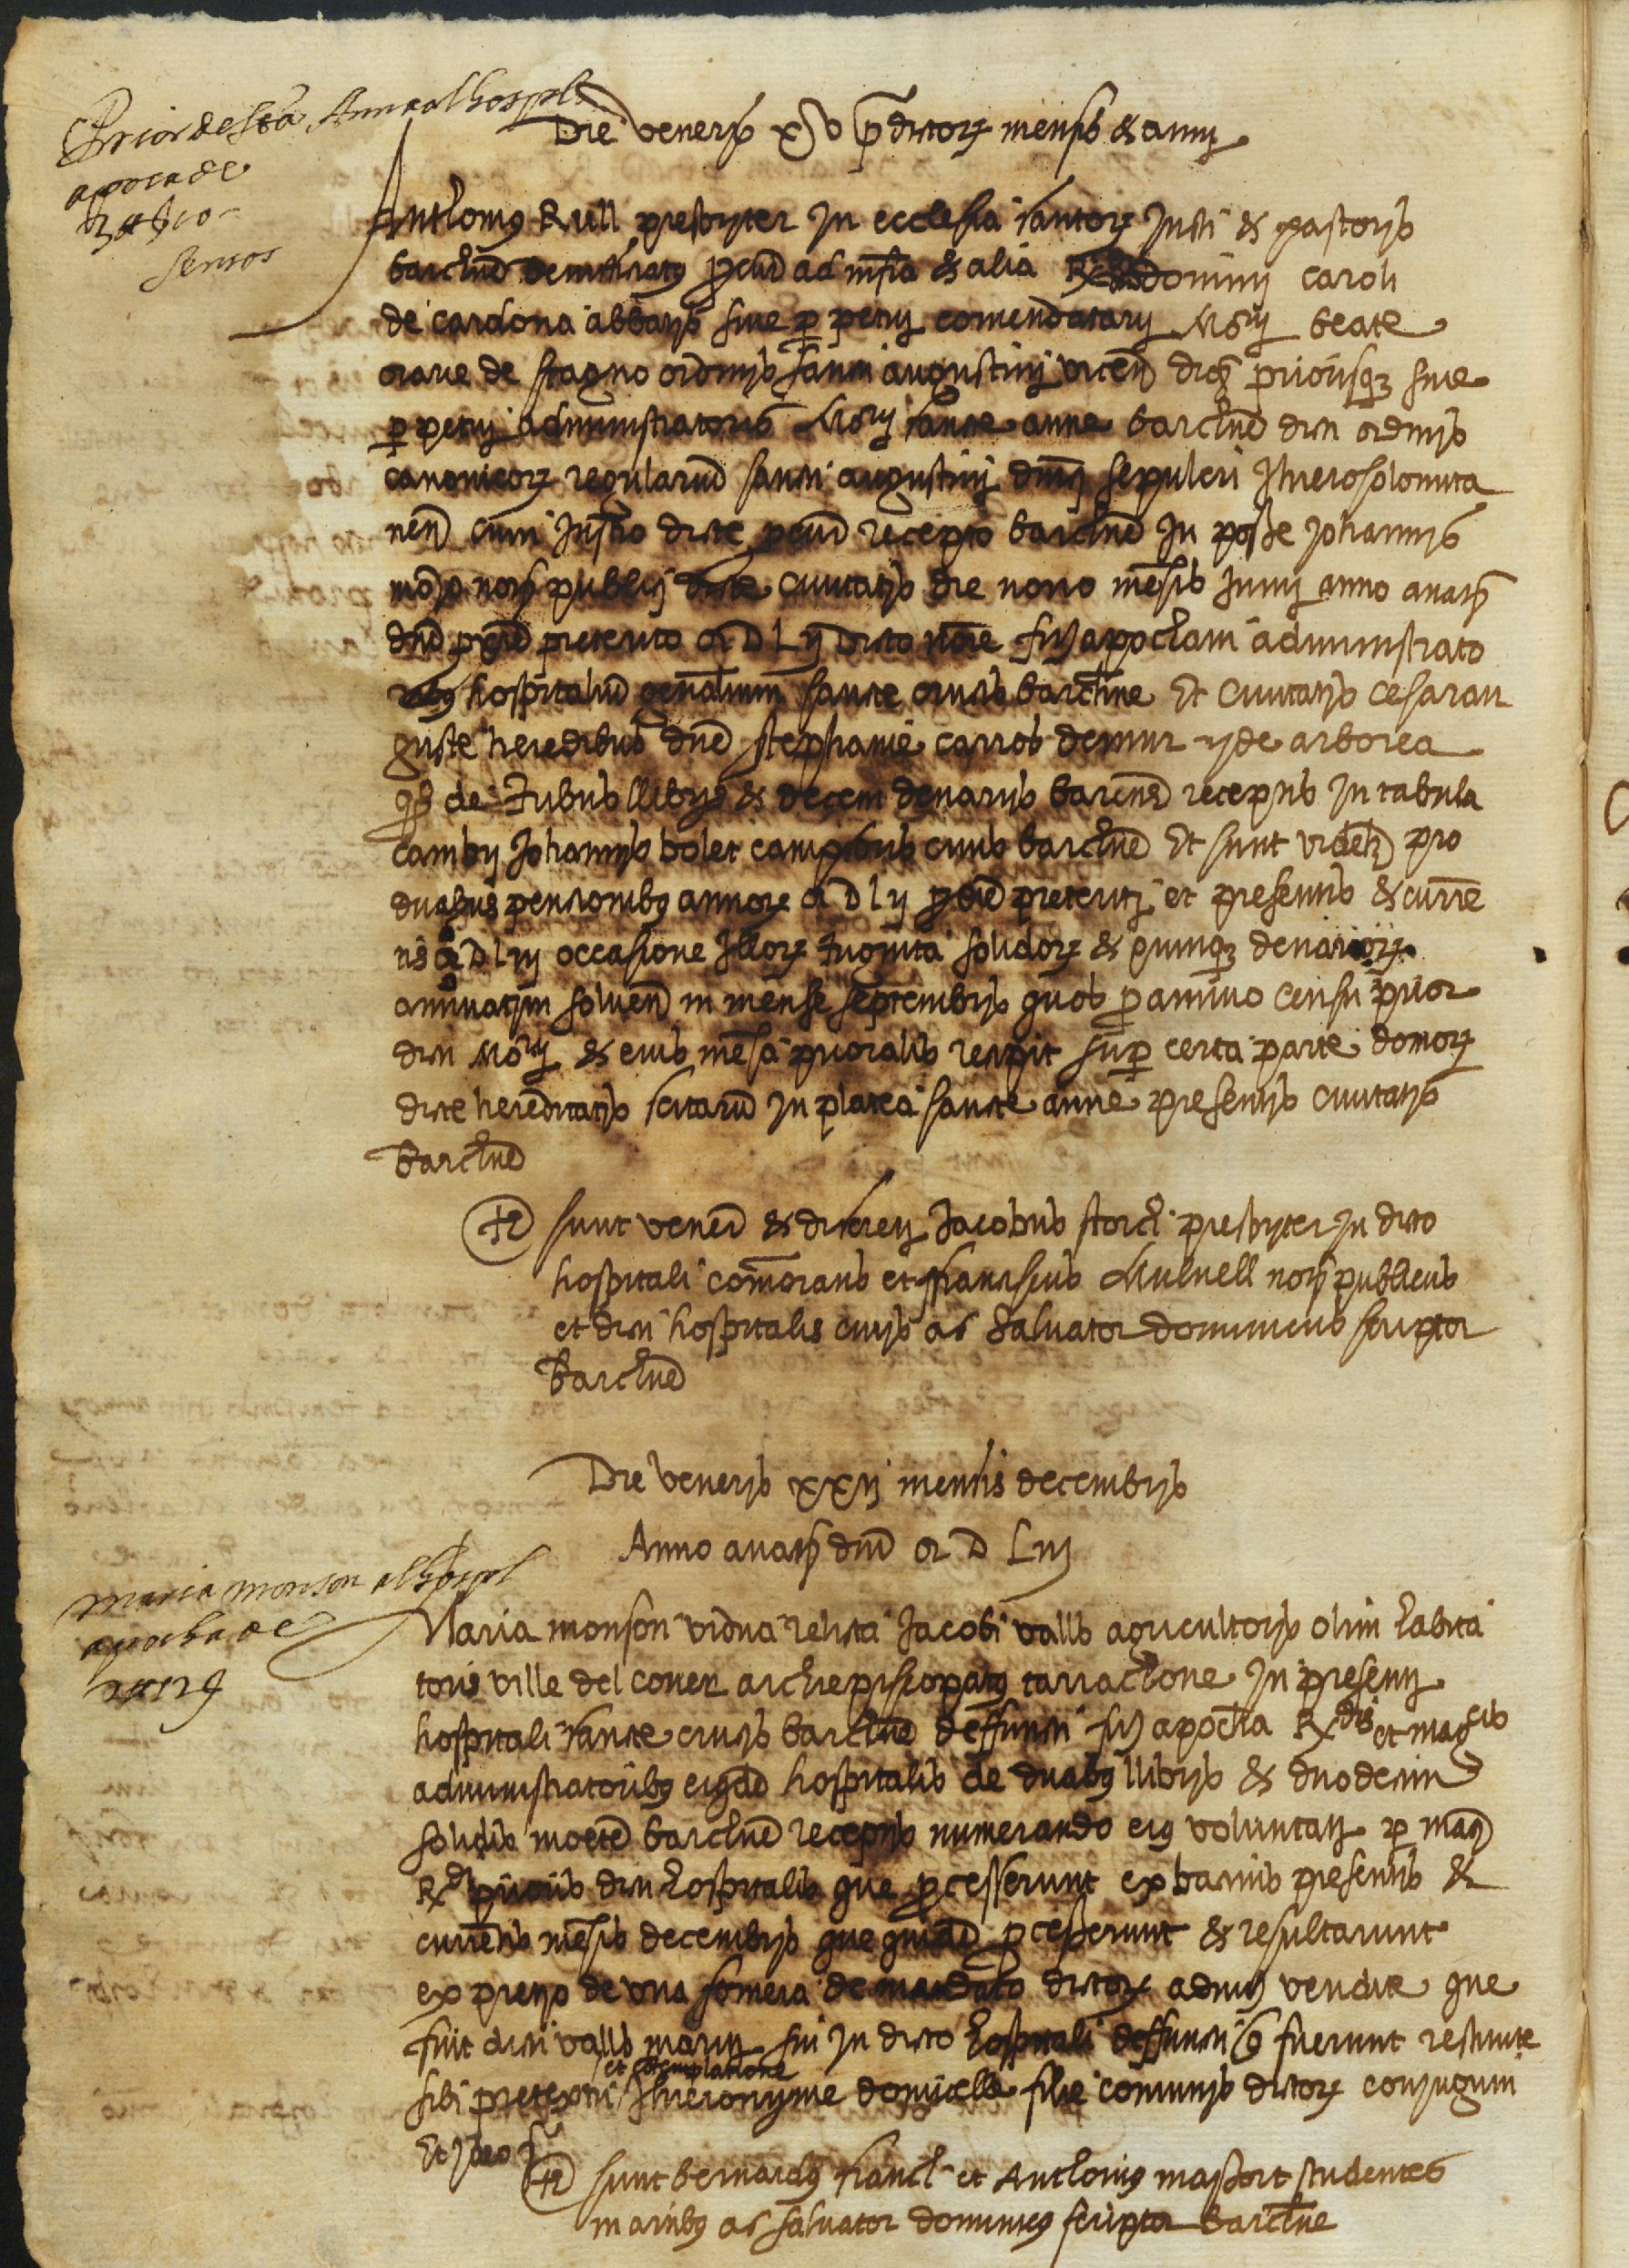 Prior de sta Anna al hospl
apoca de
3 ll 10
sensos
Die veneris xv predictorum mensis & anni
Anthonius Rull presbyter in ecclesia sanctorum Justi & pastoris
barchne procur ad infra & alia Rdi domini caroli
de cardona abbatis sive perpetui comendatarii Mon beate
marie de stagno ordinis sancti augustini vicen dioc priorisque sive
perpetui administratoris Monrii sancte anne barchne dicti ordinis
canonicorum regularium sancti augustini divi sepulcri Jherosolomita
nen cum instro dicte procur recepto barchne in posse Johannis
not publici dicte civitatis die nono mensis Junii anno a nati
dni preterito M D L ii dicto noie fir apocham administrato
ribus hospitalium generalium sancte crucis barchne Et civitatis cesarau
guste heredibus dne stephanie carros de mur y de arborea
qe de tribus llibris & decem denariis barchne receptis in tabula
cambii Johannis bolet campsoris civis barchne Et sunt videlt pro
duabus pensionibus annorum M D L ii preteriti et presentis & curren
tis M D L iii occasione illorum triginta solidorum & quinque denariorum
annuatim solven in mense septembris quos pro annuo censu prior
dicti Monrii & eius mensa prioralis recipit super certa parte domorum
dicte hereditatis scitarum in platea sancte anne presentis civitatis
barchne
ts sunt vener & discreti Jacobus storch presbyter in dicto
hospitali comorans et franciscus Mulnell not publicus
et dicti hospitalis civis ac Salvator dominicus scriptor
barchne
Die veneris xxii mensis decembris
Anno a nati dni M D L iii
maria monson al hospl
apocha de
2 ll 12 s
Maria monson vidua relicta Jacobi valls agricultoris olim habita
toris ville del archiepiscopatus tarrachone in presenti
hospitali sancte crucis barchne deffuncti fir apocha Rdis et magcis
administratoribus eiusdem hospitalis de duabus llibris & duodecim
solidis monete barchne receptis numerando eius voluntati per mag
Rdi prioris dicti hospitalis que processerunt ex presentis &
currentis mensis decembris que quidem processerunt & resultarunt
ex precio de una somera de mandato dictorum admin vendite que
fuit dicti valls mariti sui in dicto hospitali deffuncti & fuerunt restitute
sibi pretextu et contemplatione Jheronyme domicelle filie comunis dictorum conjugum
Et ideo
ts sunt bernardus franch et Anthonius massort studentes
in artibus ac salvator dominicus scriptor barchne